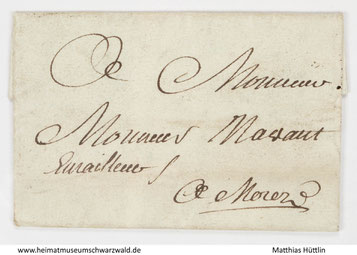 A Monsieur.
Monsieur Mayant
Emailleur
A Morez
www.heimatmuseumschwarzwald.de
Matthias Hüttlin